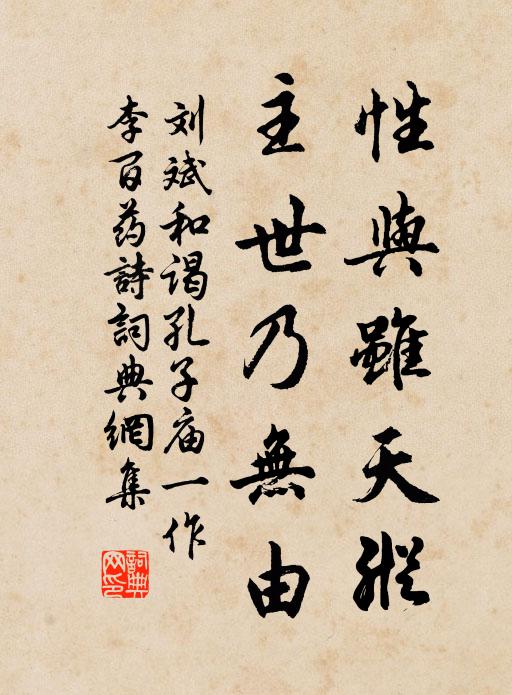 性與雖天縱
主世乃無由
刘斌和谒孔子庙一作
李百药詩詞典網集
詞典网印